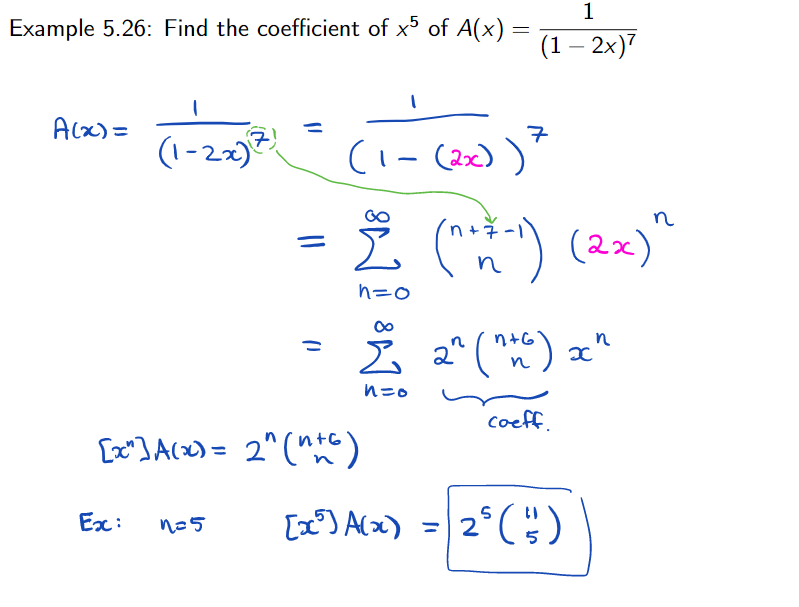 Example 5.26: Find the coefficient of x⁵ of A(x) = 1/(1 − 2x)⁷
A(x) = 1/(1-2x)⁷ = 1/(1-(2x))⁷
= ∑_{n=0}^{∞} \binom{n+7-1}{n} (2x)ⁿ
= ∑_{n=0}^{∞} 2ⁿ \binom{n+6}{n} xⁿ
coeff.
[xⁿ]A(x) = 2ⁿ \binom{n+6}{n}
Ex: n=5 [x⁵]A(x) = 2⁵ \binom{11}{5}